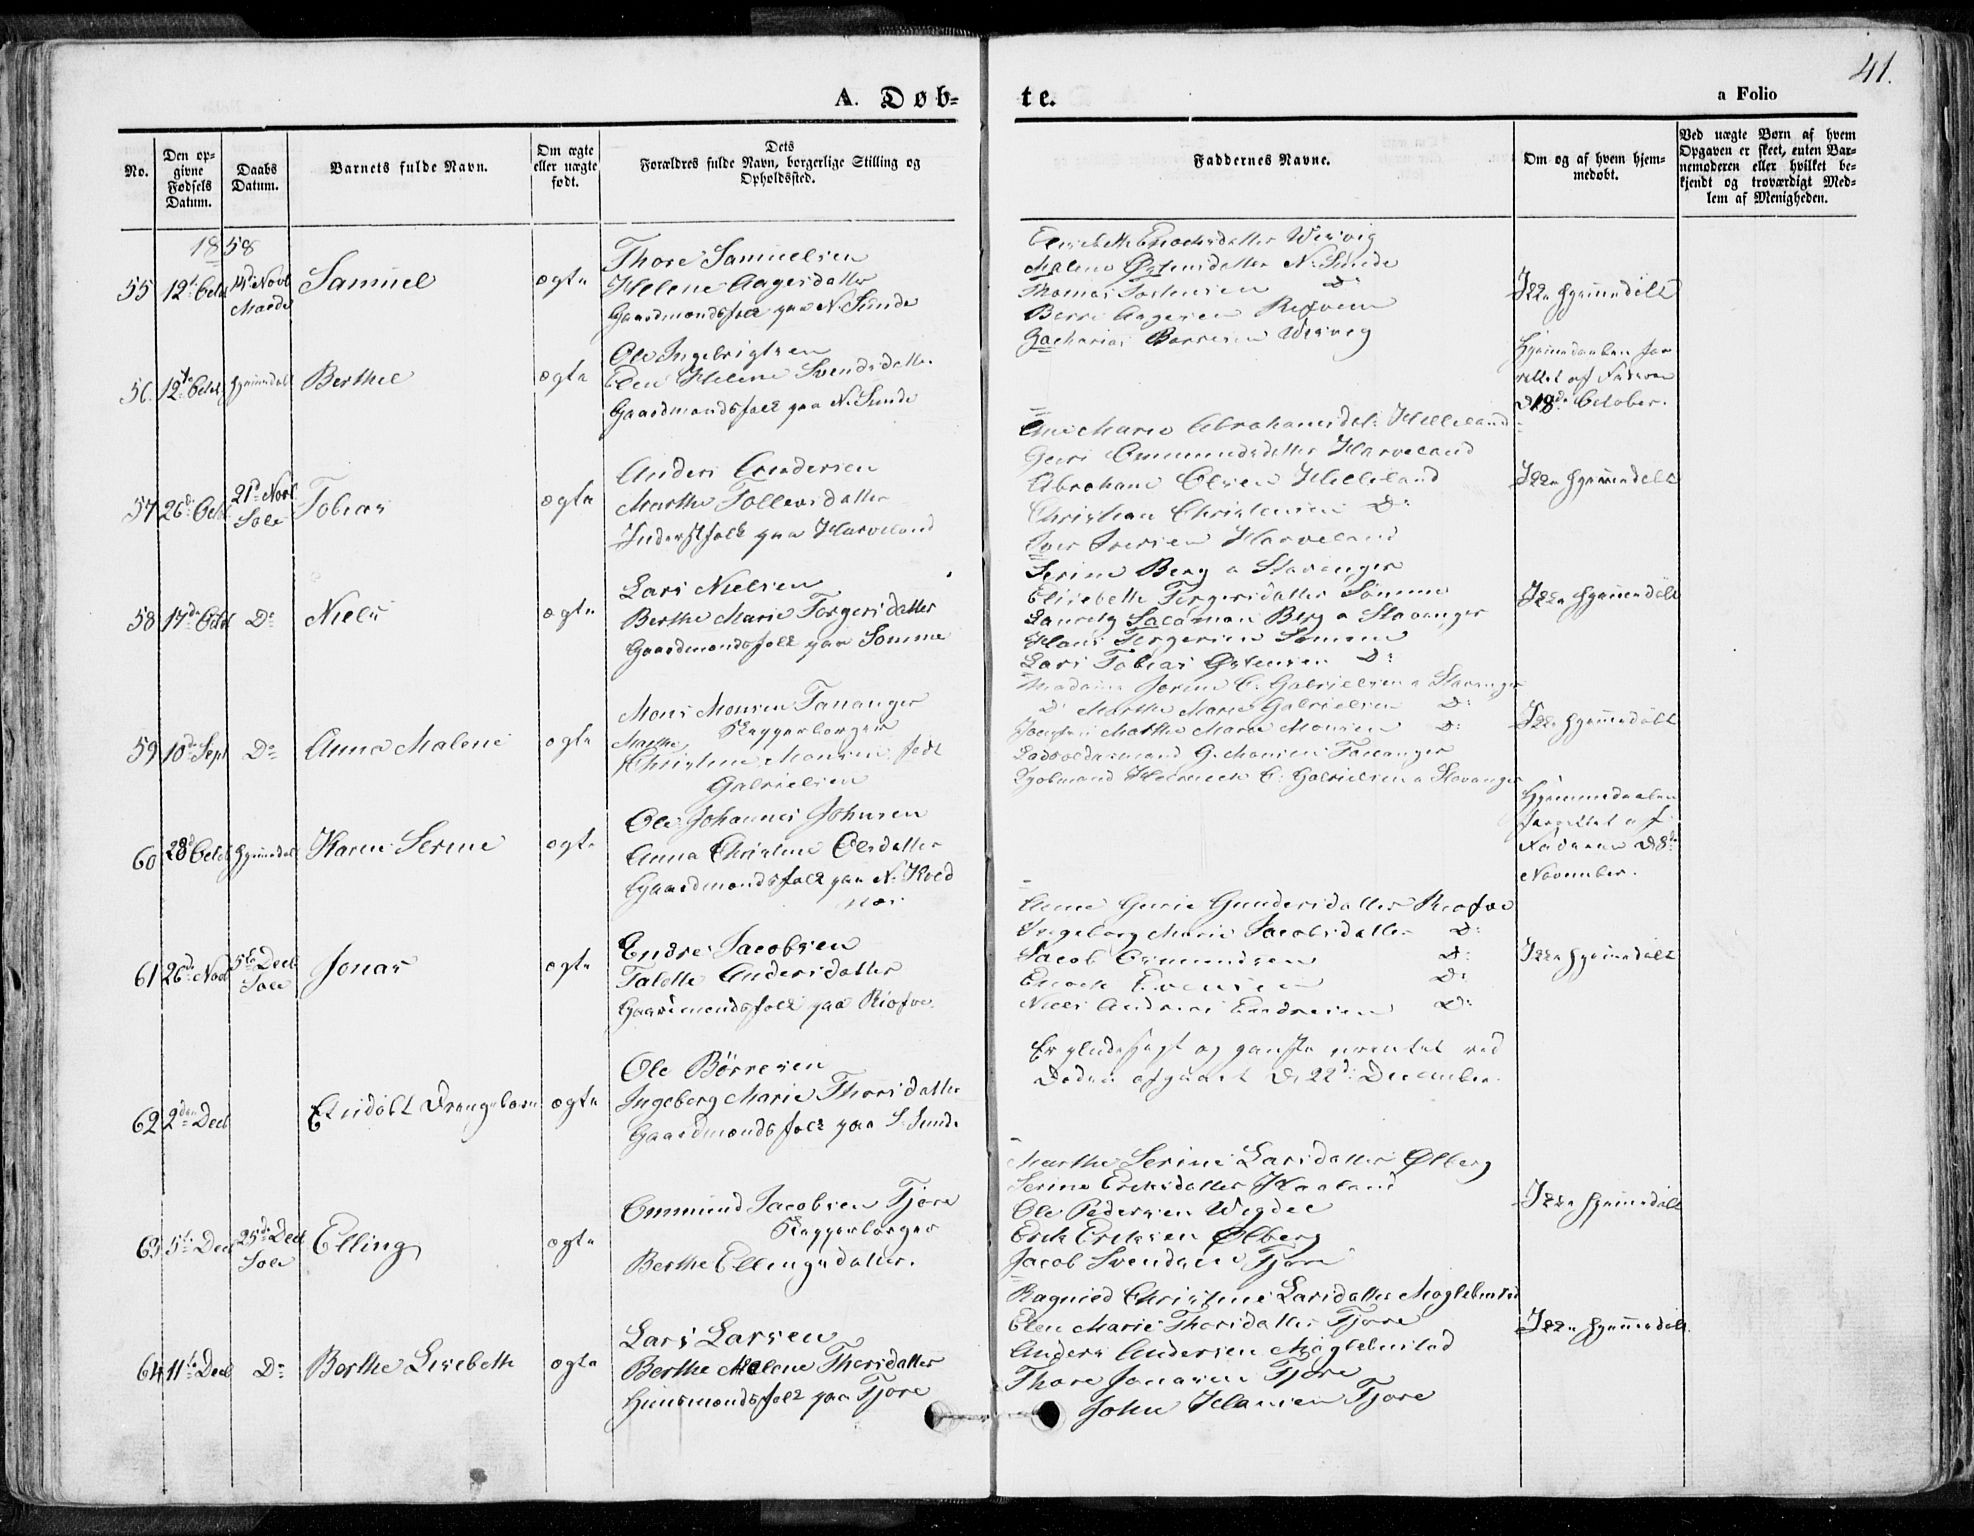 41.
A. Døb-
te.
a Folio
No.
Den op-
givne
Fødsels
Datum.
Daabs
Datum.
Barnets fulde Navn.
Om ægte
eller uægte
født.
Dets
Forældres fulde Navn, borgerlige Stilling og
Opholdssted.
Faddernes Navne.
Om og af hvem hjem-
medøbt.
Ved uægte Børn af hvem
Opgaven er skeet, enten Bar-
nemoderen eller hvilket be-
kjendt og troværdigt Med-
lem af Menigheden.
1858
55
12te Octbr
14de Novbr
Samuel
ægte
Thore Samuelsen
Helene Aagesdatter
Gaardmandsfolk paa N. Sunde
Elisabeth Enochsdatter
Malene Østensdatter N. Sunde
Thomas Tostensen Do
Aagesen
Zacharias Børresen
Ikke hjemmedøbt
56
12te Octbr
hjemmedøbt
Berthe
ægte
Ole Ingebrigtsen
Elen Helene Svendsdatter
Gaardmandsfolk paa N. Sunde
Hjemmedaaben for-
rettet af Faderen
d. 18de October.
57
26de Octbr
21de Novbr
Sole
Tobias
ægte
Anders Endersen
Marthe Tollevsdatter
Inderstfolk paa Harveland
Ane Marie Abrahamsdtr Helleland
Guri Ommundsdatter Harveland
Abraham Olsen Helleland
Christian Christensen Do
Iver Iversen Harveland
Ikke hjemmedøbt
58
17de Octbr
Do
Niels
ægte
Lars Nielsen
Berthe Marie Torgersdatter
Gaardmandsfolk paa Sømme
Serine Berg a Stavanger
Elisebeth Torgersdatter Sømme
Lauritz Salomon Berg a Stavanger
Hans Torgersen Sømme
Lars Tobias Østensen Do
Ikke hjemmedøbt
59
10de Sept
Do
Anna Malene
ægte
Mons Monsen Tananger
Marthe
Christine Monsen født
Gabrielsen
Madame Serine C. Gabrielsen a Stavanger
Do Marthe Marie Gabrielsen Do
Jomfru Marthe Marie Monsen Do
G. Monsen Tananger
C. Gabrielsen a Stavanger
Ikke hjemmedøbt
60
28de Octbr
hjemmedøbt
Karen Serine
ægte
Ole Johannes Johnsen
Anna Christine Olsdatter
Gaardmandsfolk paa N. Kold
næs
Hjemmedaaben
forrettet af
Faderen d. 8de
November.
61
26de Novbr
5te Decbr
Sole
Jonas
ægte
Endre Jacobsen
Talette Andersdatter
Gaardmandsfolk paa Risfoe
Anne Gurie Gundersdatter Risfoe
Ingeborg Marie Jacobsdatter Do
Jacob Ommundsen Do
Enoch Evensen Do
Niels Andreas Endresen Do
Ikke hjemmedøbt
62
2den Decbr
Et udøbt Drengebarn
ægte
Ole Børresen
Ingeborg Marie Thorsdatter
Gaardmandsfolk paa S. Sunde
Er pludseligt og ganske uventet ved
Døden afgaaet d. 22de December.
63
5te Decbr
25de Decbr
Sole
Elling
ægte
Ommund Jacobsen Tjore
Berthe Ellingsdatter.
Marthe Serine Larsdatter Ølberg
Serine Eriksdatter Haaland
Ole Pedersen Wigdel
Erik Eriksen Ølberg
Jacob Svendsen Tjore
Ikke hjemmedøbt
64
11te Decbr
Do
Berthe Lisebeth
ægte
Lars Larsen
Berthe Malene Thorsdatter
Huusmandsfolk paa Tjore
Ragnild Christine Larsdatter
Elen Marie Thorsdatter Tjore
Anders Andersen
Thore Jonasen Tjore
John Hansen Tjore
Ikke hjemmedøbt